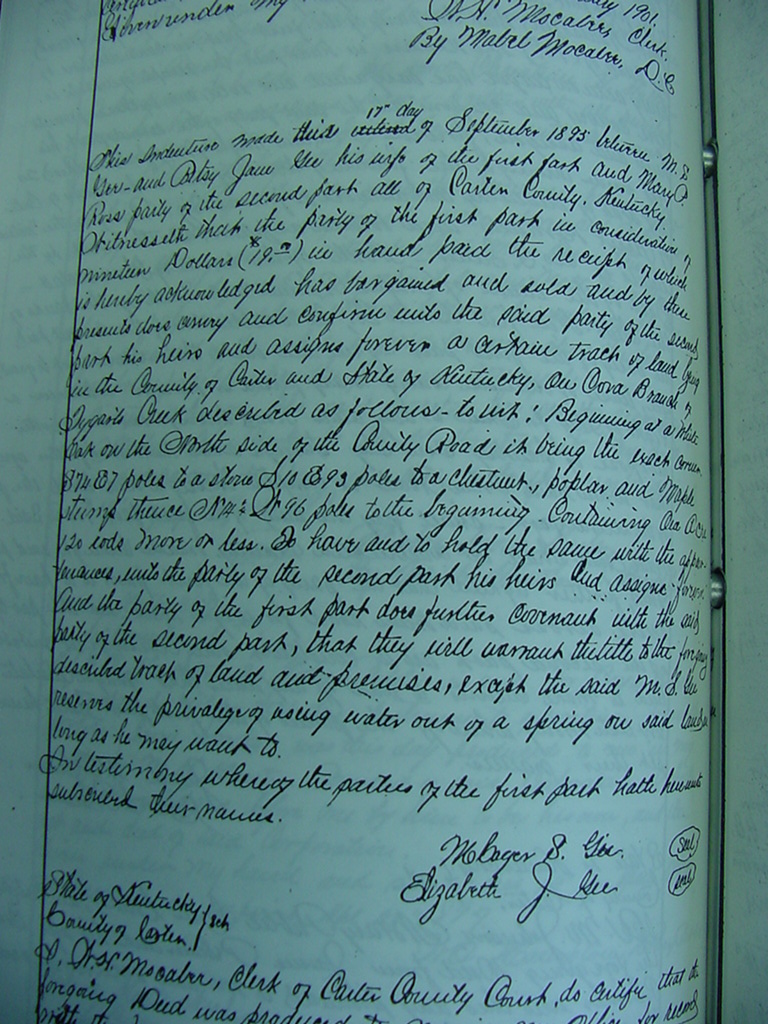 Given under my
1901.
W. H. Mocaber, Clerk.
By Mabel Mocaber, D.C
This Indenture made this 17th day of September 1895 between M. S.
Gee and Betsy Jane Gee his wife of the first part and Mary P.
Ross party of the second part all of Carter County, Kentucky
Witnesseth that the party of the first part in consideration of
nineteen Dollars ($19.00) in hand paid the receipt of which
is hereby acknowledged has bargained and sold and by these
presents does convey and confirm unto the said party of the second
part his heirs and assigns forever a certain track of land lying
in the County of Carter and State of Kentucky, on Cova Branch of
Tygarts Creek described as follows - to wit: Beginning at a White
oak on the North side of the County Road it being the exact corner
S74 E87 poles to a stone S10 E93 poles to a chestnut, poplar and Maple
stump thence N W 96 poles to the beginning. Containing One Acre
120 rods more or less. To have and to hold the same with the appur-
tenances, unto the party of the second part his heirs and assigns forever
And the party of the first part does further covenant with the said
party of the second part, that they will warrant the title to the forgoing
described track of land and premises, except the said M. S. Gee
reserves the privalege of using water out of a spring on said land as
long as he may want to.
In testimony whereof the parties of the first part hath hereunto
subscribed their names.
S. Gee. Seal
Elizabeth J. Gee Seal
State of Kentucky } sch
County of Carter
I, W. H. Mocaber, Clerk of Carter County Court, do certify that the
foregoing Deed was produced to Office for record